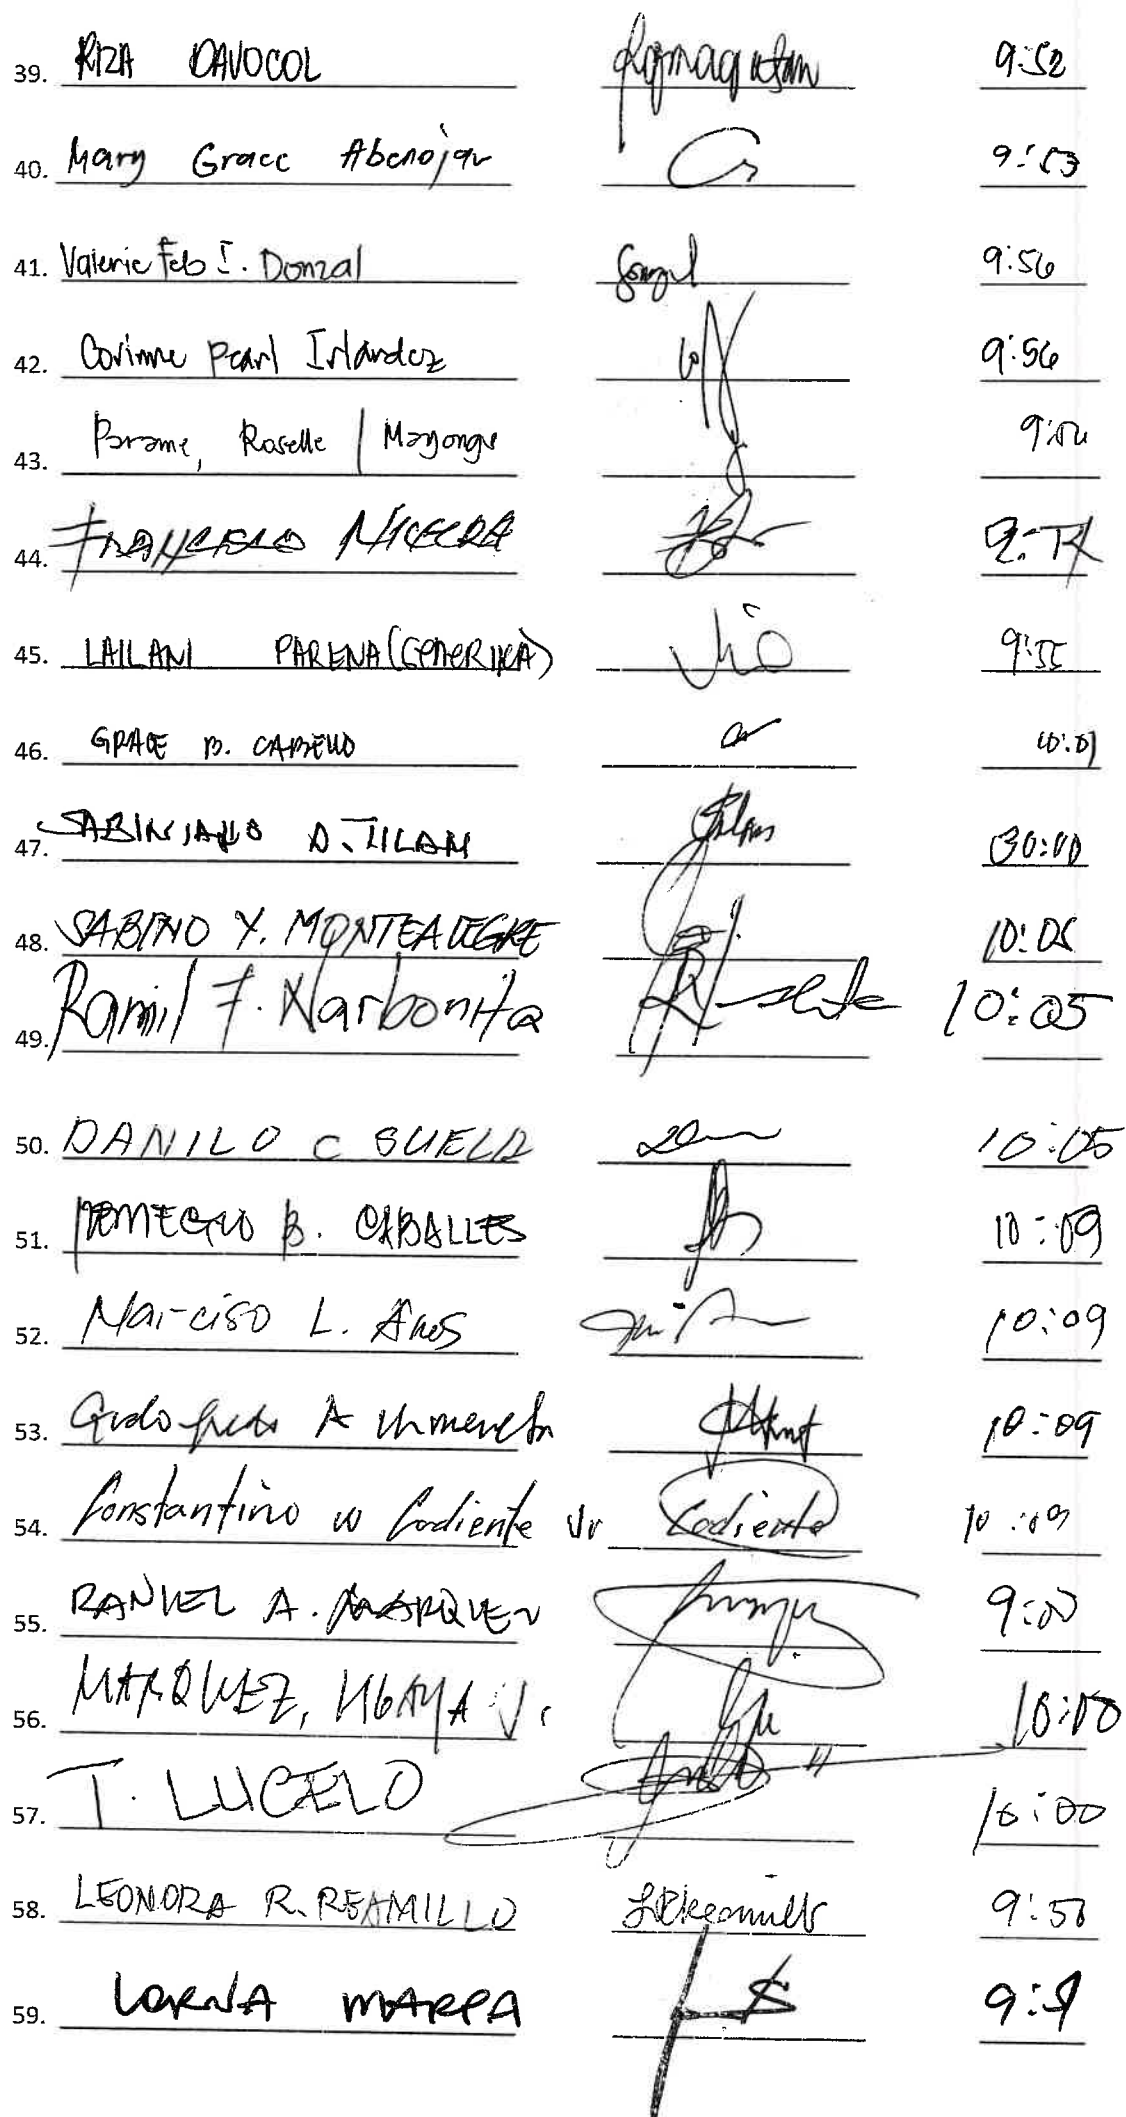 39. RIZA DAVOCOL 9:52
40. Mary Grace Abenojar 9:53
41. Valerie Feb I. Donzal 9:56
42. Corinne Pearl Irlandez 9:56
43. Parame, Roselle / Magongu
44. FRANCISCO NICERRA
45. LAILANI PARENA (GENERIKA) 9:55
46. GRACE B. CABELLO 10:01
47. SABINIANO D. TILAM
48. SABINO Y. MONTEALEGRE 10:05
49. Ramil F. Narbonita 10:05
50. DANILO C SUELA 10:05
51. B. CABALLES 10:09
52. Narciso L. 10:09
53. Godofredo A 10:09
54. Constantino W Codiente Jr Codiente 10:09
55. RANIEL A. MARQUEZ 9:00
56. MARQUEZ, J. 10:00
57. T. LUCELO 10:00
58. LEONORA R. REAMILLO LRReamillo
59. LORNA MARPA